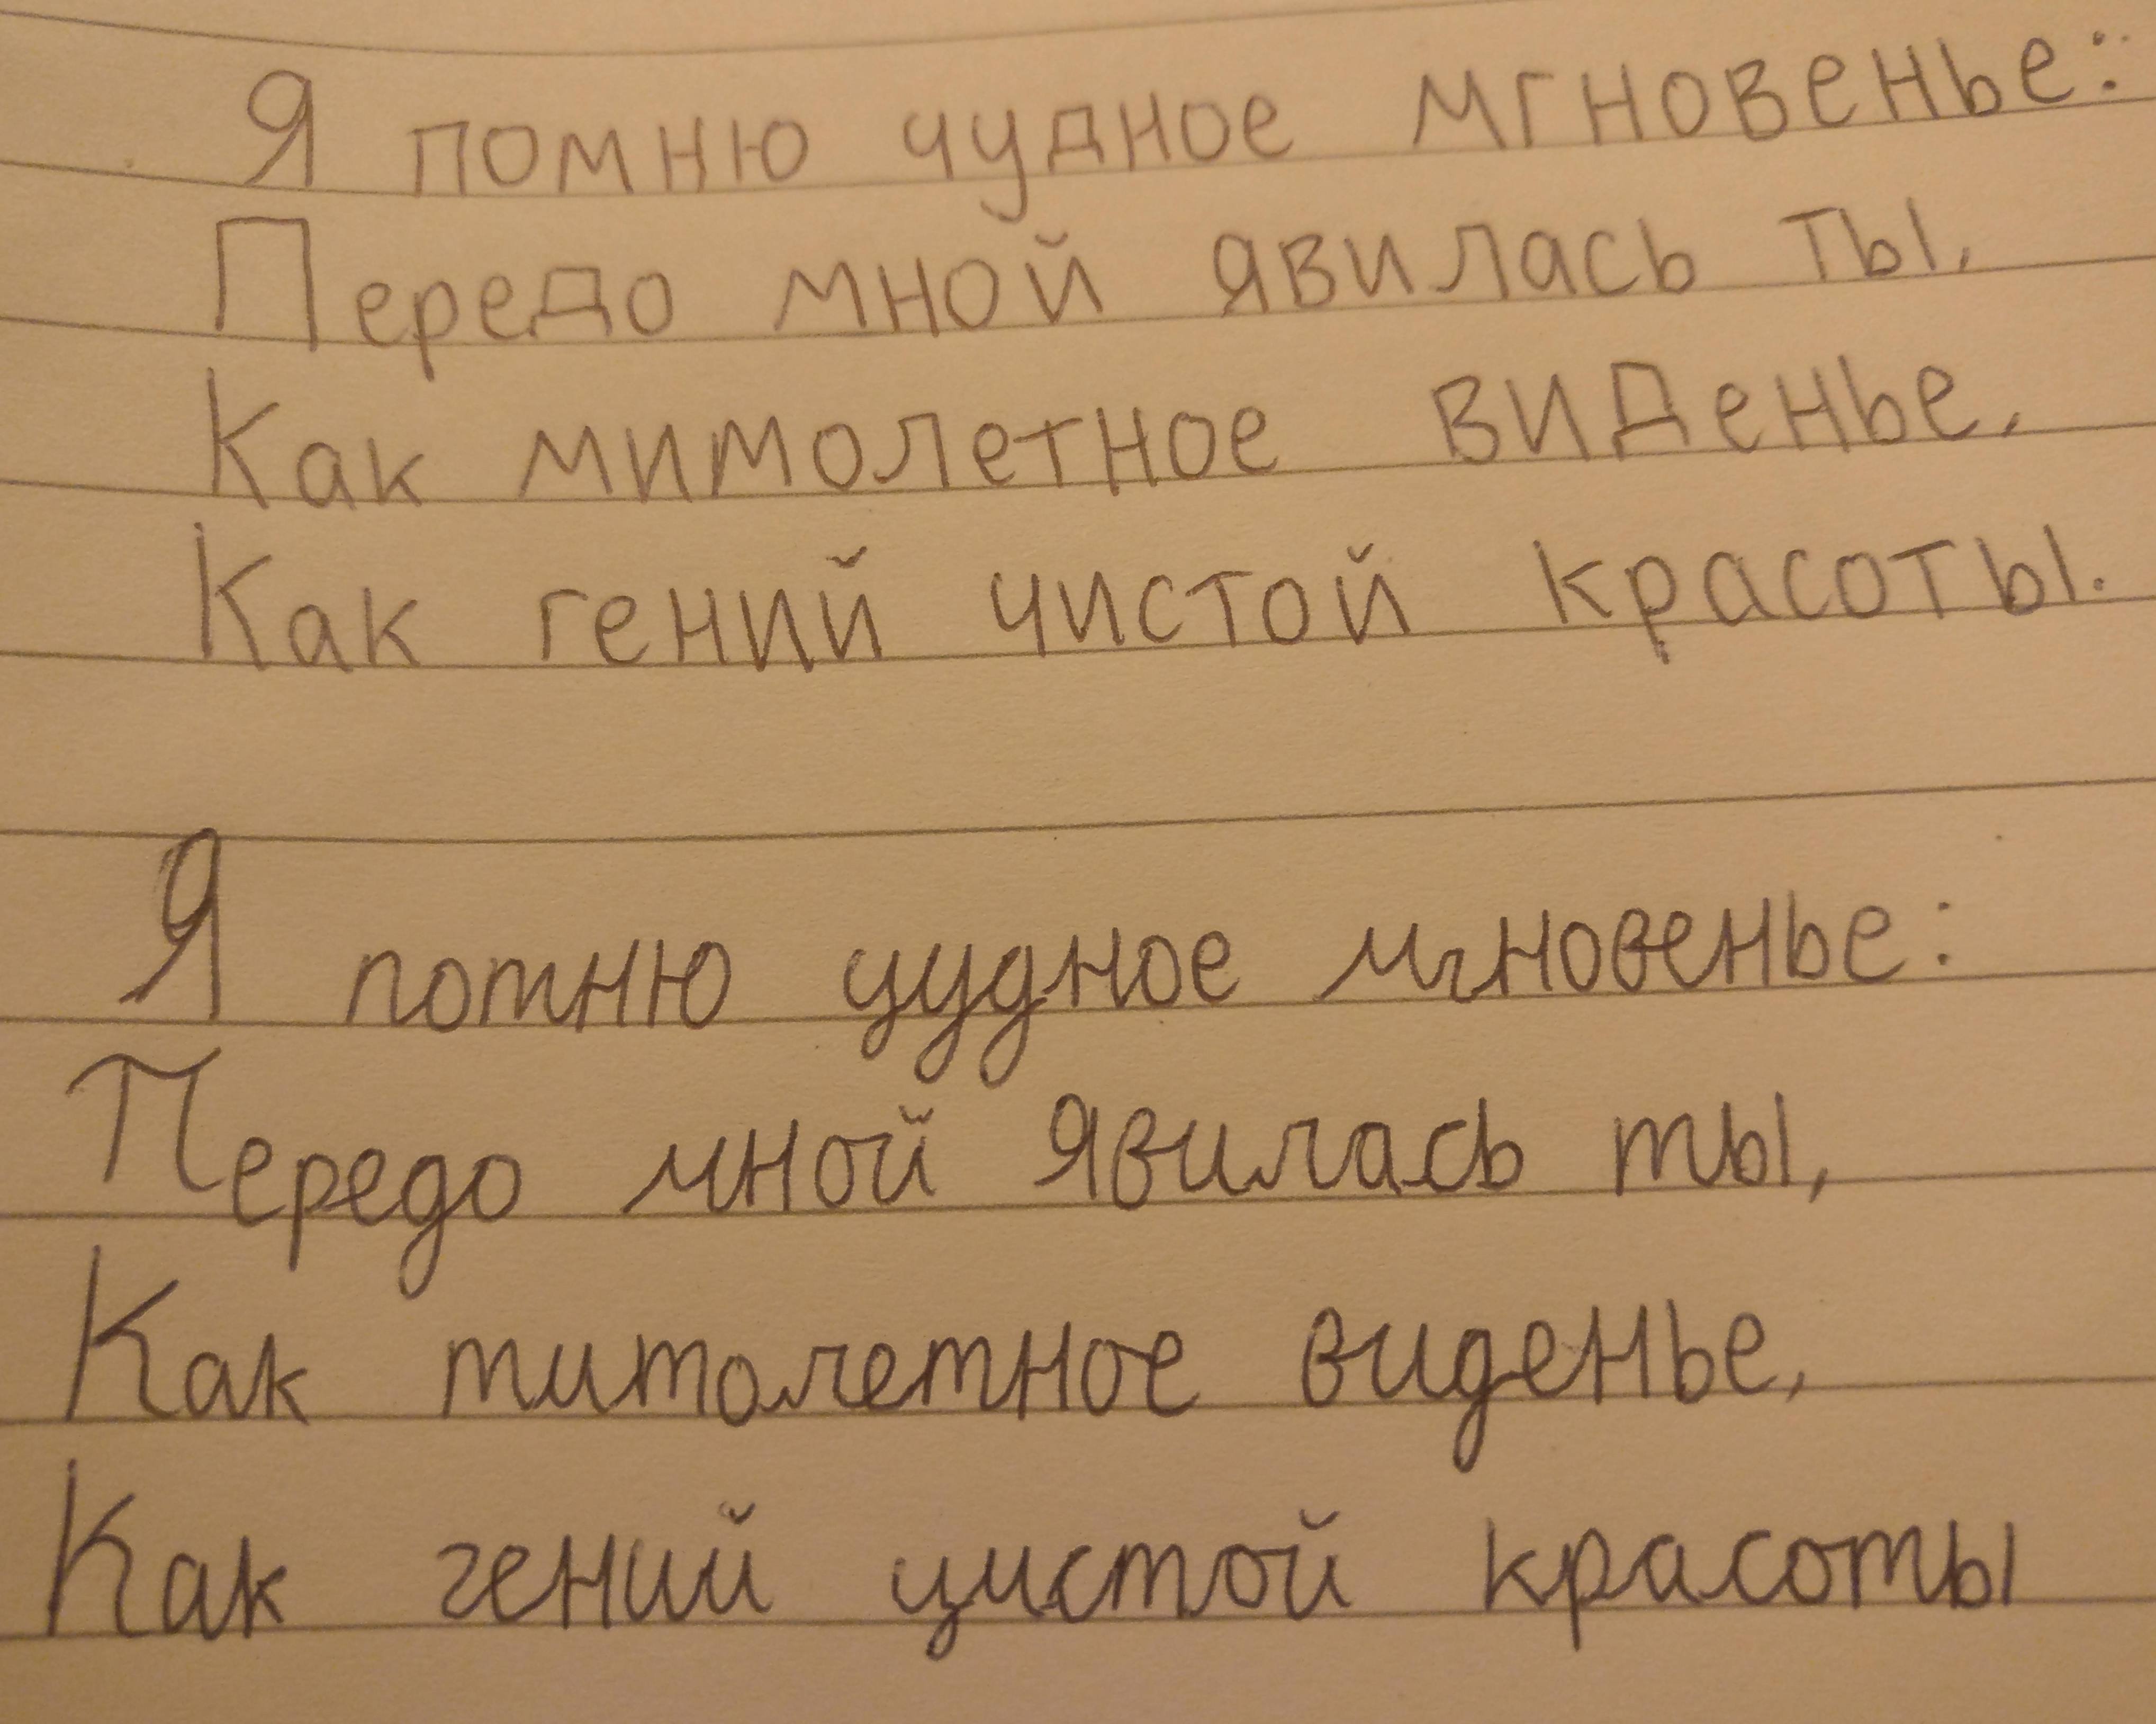 Я помню чудное мгновенье:
Передо мной явилась ты,
Как мимолетное виденье,
Как гений чистой красоты.
Я помню чудное мгновенье:
Передо мной явилась ты,
Как мимолетное виденье,
Как гений чистой красоты